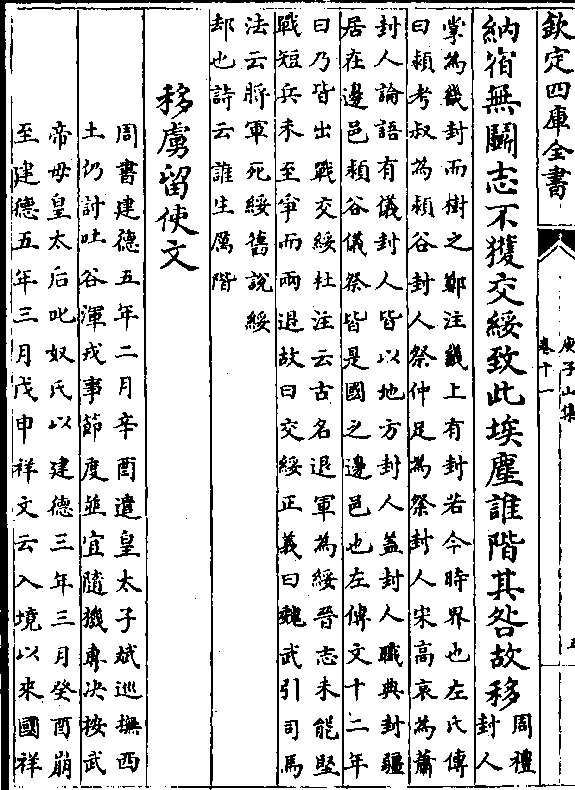 欽定四庫全書
庾子山集
卷十一
五
納宿無鬬志不獲交綏致此埃塵誰階其咎故移
周禮
封人
掌為畿封而樹之鄭注畿上有封若今時界也左氏傳
曰頴考叔為頴谷封人祭仲足為祭封人宋高哀為蕭
封人論語有儀封人皆以地方封人葢封人職典封疆
居在邊邑頴谷儀祭皆是國之邊邑也左傳文十二年
曰乃皆出戰交綏杜注云古名退軍為綏晉志未能堅
戰短兵未至爭而兩退故曰交綏正義曰魏武引司馬
法云將軍死綏舊說綏
却也詩云誰生厲階
移虜留使文
周書建德五年二月辛酉遣皇太子斌巡撫西
土仍討吐谷渾戎事節度並宜隨機專决按武
帝母皇太后叱奴氏以建德三年三月癸酉崩
至建德五年三月戊申祥文云入境以來國祥